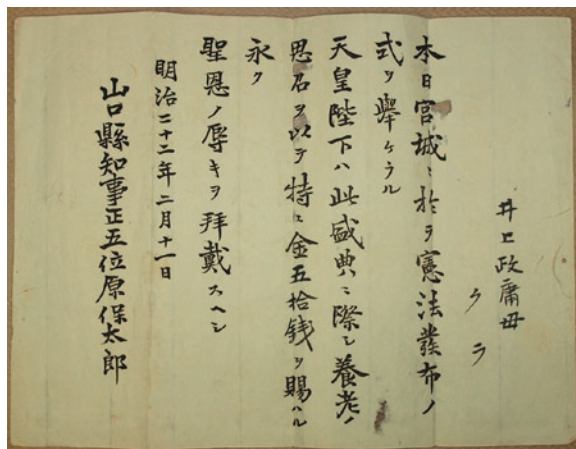 井上政庸母
クラ
本日宮城ニ於テ憲法發布ノ
式ヲ舉ケラル
天皇陛下ハ此盛典ニ際シ養老ノ
恩召ヲ以テ特ニ金五拾錢ヲ賜ハル
永ク
聖恩ノ辱キヲ拜戴スヘシ
明治二十二年二月十一日
山口縣知事正五位原保太郎